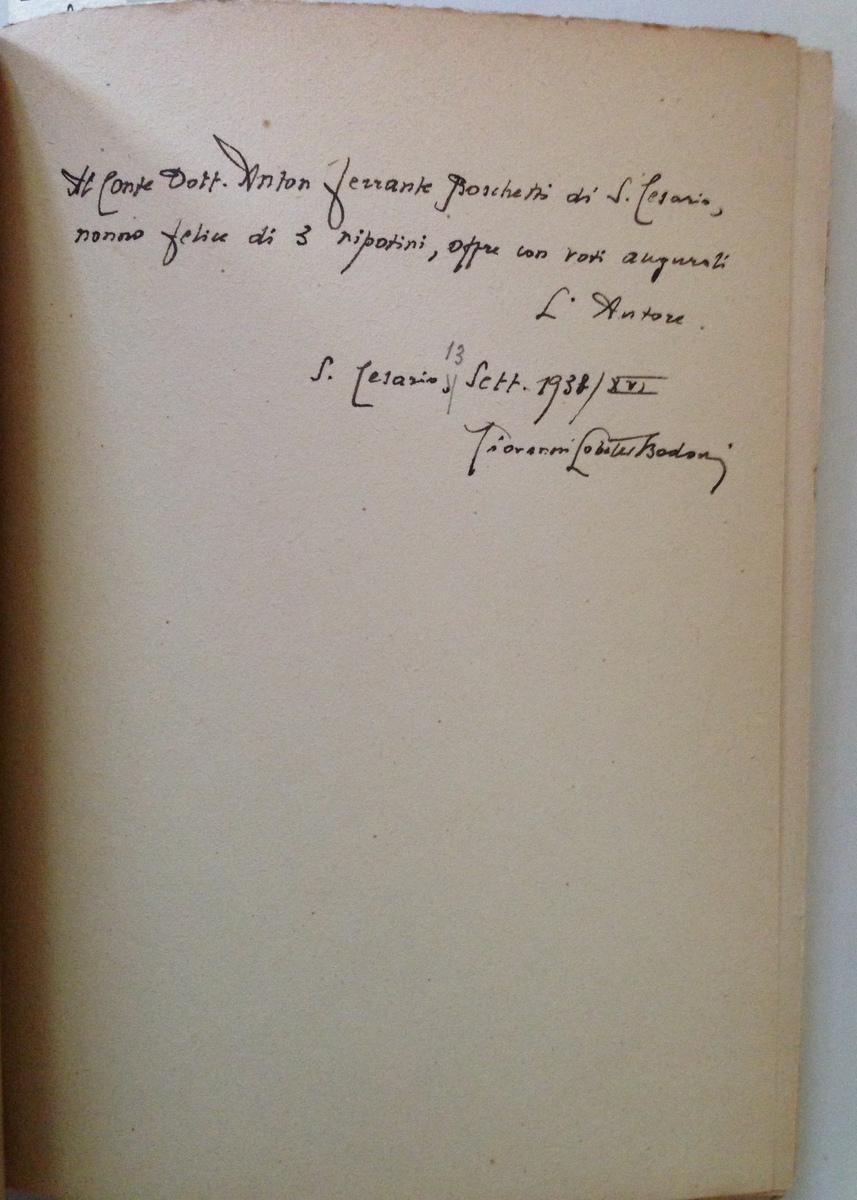 Al Conte Dott. Anton Ferrante Boschetti di S. Cesario,
nonno felice di 3 nipotini, offre con voti augurali
L'Autore.
13
S. Cesario, Sett. 1938/XVI
Giovanni Bodoni